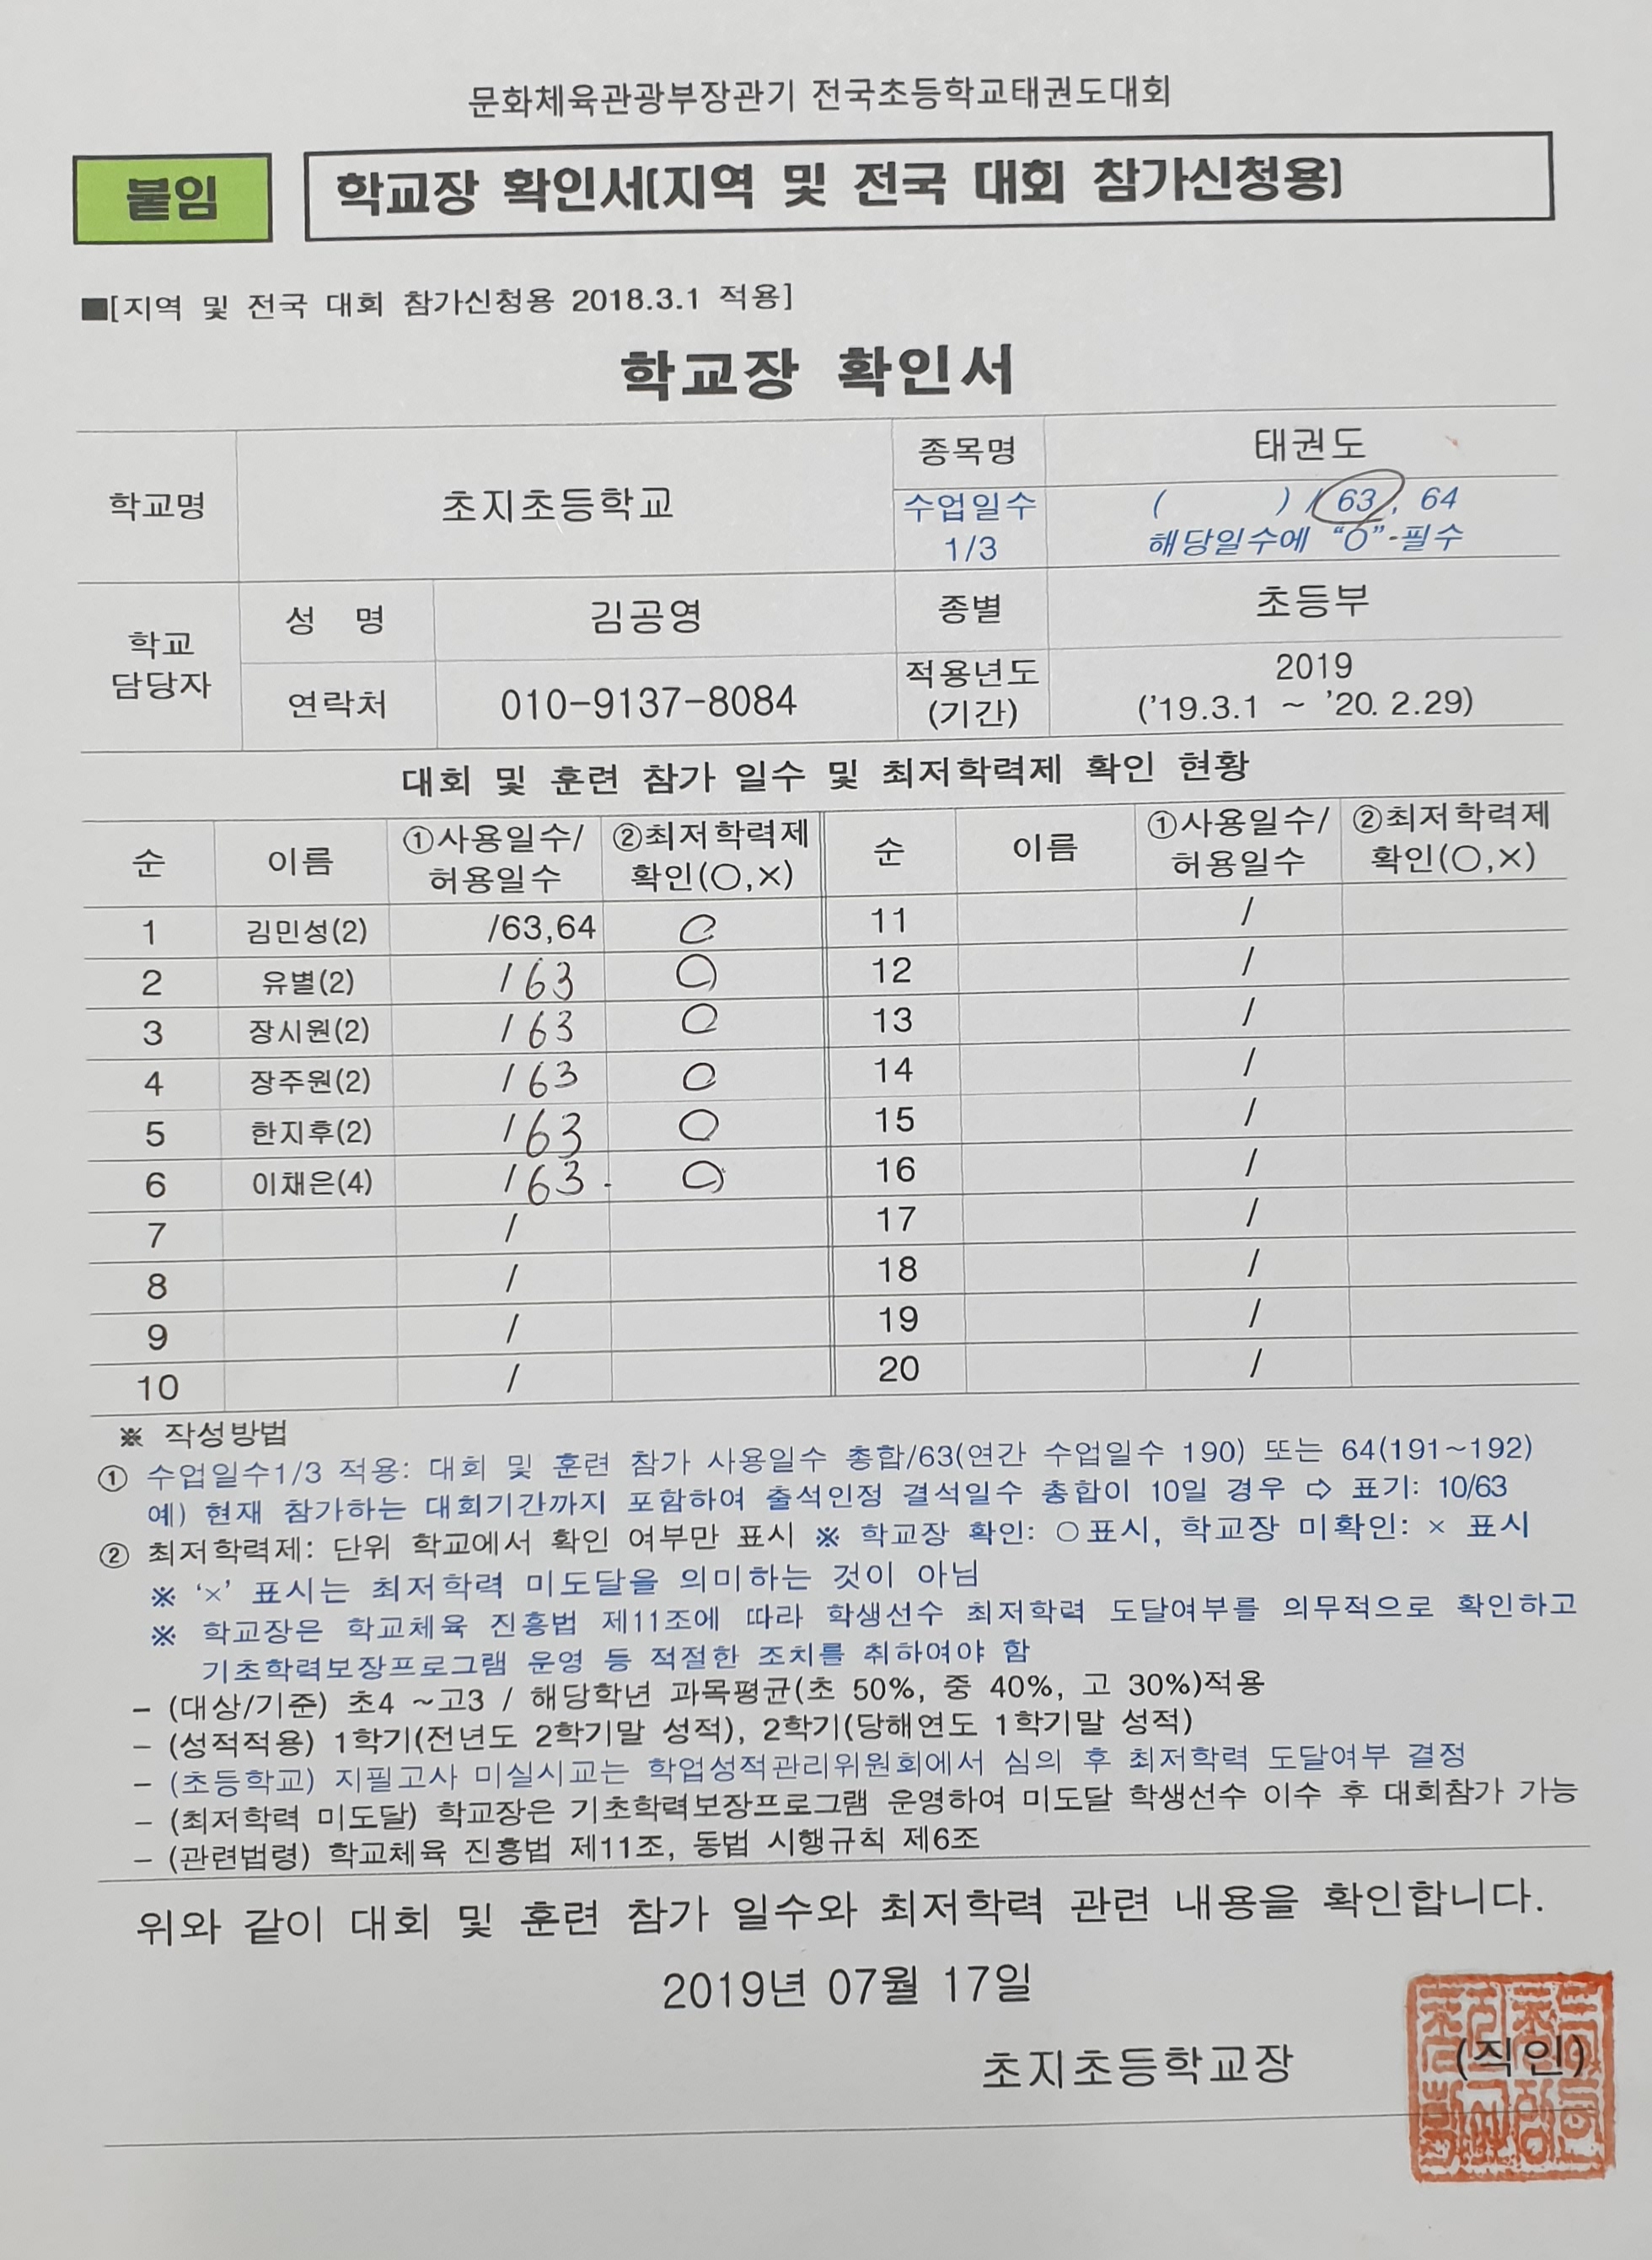 문화체육관광부장관기 전국초등학교태권도대회
붙임
학교장 확인서(지역 및 전국 대회 참가신청용)
■[지역 및 전국 대회 참가신청용 2018.3.1 적용]
학교장 확인서
학교명 초지초등학교 종목명 태권도
수업일수 1/3 ( ) / 63, 64
해당일수에 “O”-필수
학교 담당자 성 명 김공영 종별 초등부
연락처 010-9137-8084 적용년도 (기간) 2019
('19.3.1 ~ '20. 2.29)
대회 및 훈련 참가 일수 및 최저학력제 확인 현황
순 이름 ①사용일수/허용일수 ②최저학력제 확인(○,×) 순 이름 ①사용일수/허용일수 ②최저학력제 확인(○,×)
1 김민성(2) /63,64 ○ 11 /
2 유별(2) /63 ○ 12 /
3 장시원(2) /63 ○ 13 /
4 장주원(2) /63 ○ 14 /
5 한지후(2) /63 ○ 15 /
6 이채은(4) /63. ○ 16 /
7 / 17 /
8 / 18 /
9 / 19 /
10 / 20 /
※ 작성방법
① 수업일수1/3 적용: 대회 및 훈련 참가 사용일수 총합/63(연간 수업일수 190) 또는 64(191~192)
예) 현재 참가하는 대회기간까지 포함하여 출석인정 결석일수 총합이 10일 경우 ⇨ 표기: 10/63
② 최저학력제: 단위 학교에서 확인 여부만 표시 ※ 학교장 확인: ○표시, 학교장 미확인: × 표시
※ ‘×’ 표시는 최저학력 미도달을 의미하는 것이 아님
※ 학교장은 학교체육 진흥법 제11조에 따라 학생선수 최저학력 도달여부를 의무적으로 확인하고
기초학력보장프로그램 운영 등 적절한 조치를 취하여야 함
– (대상/기준) 초4 ~고3 / 해당학년 과목평균(초 50%, 중 40%, 고 30%)적용
– (성적적용) 1학기(전년도 2학기말 성적), 2학기(당해연도 1학기말 성적)
– (초등학교) 지필고사 미실시교는 학업성적관리위원회에서 심의 후 최저학력 도달여부 결정
– (최저학력 미도달) 학교장은 기초학력보장프로그램 운영하여 미도달 학생선수 이수 후 대회참가 가능
– (관련법령) 학교체육 진흥법 제11조, 동법 시행규칙 제6조
위와 같이 대회 및 훈련 참가 일수와 최저학력 관련 내용을 확인합니다.
2019년 07월 17일
초지초등학교장 (직인)